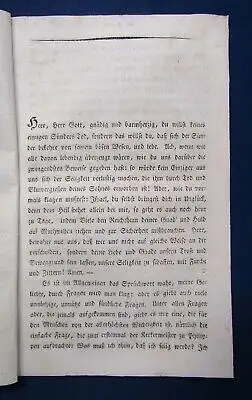 Herr, Herr Gott, gnädig und barmherzig, du willst keines
einzigen Sünders Tod, sondern das willst du, daß sich der Sün-
der bekehre von seinem bösen Wesen, und lebe. Ach, wenn wir
alle davon lebendig überzeugt wären, wie du uns darüber die
zwingendsten Beweise gegeben hast: so würde kein Einziger aus
uns sich der Seligkeit verlustig machen, die ihm durch Tod und
Blutvergießen deines Sohnes erworben ist. Aber, wie du vor-
mals klagen mußtest: Israel, du bringst dich in Unglück,
denn dein Heil stehet allein bei mir, so geht es auch noch heut
zu Tage, indem Viele den Reichthum deiner Gnad' und Huld
auf Muthwillen ziehen und zur Sicherheit mißbrauchen. Herr,
bewahre du uns, daß wir uns nicht auf gleiche Weise an dir
versünden, sondern deine Liebe und Gnade unsern Trost und
Bewegund seyn lassen, unsere Seligkeit zu schaffen, mit Furcht
und Zittern! Amen. —
Es ist im Allgemeinen das Sprüchwort wahr, meine Ge-
liebte, durch Fragen wird man klug; aber es giebt auch viele
unnöthige, unnütze und sündliche Fragen. Unter allen Fragen
aber, die jemals aufgekommen sind, giebt es nur eine, die für
den Menschen von der allerhöchsten Wichtigkeit ist, nämlich die
einfache Frage, die zum erstenmal der Kerkermeister zu Philip-
pen aufbrachte: Was muß ich thun, daß ich selig werde? Ich